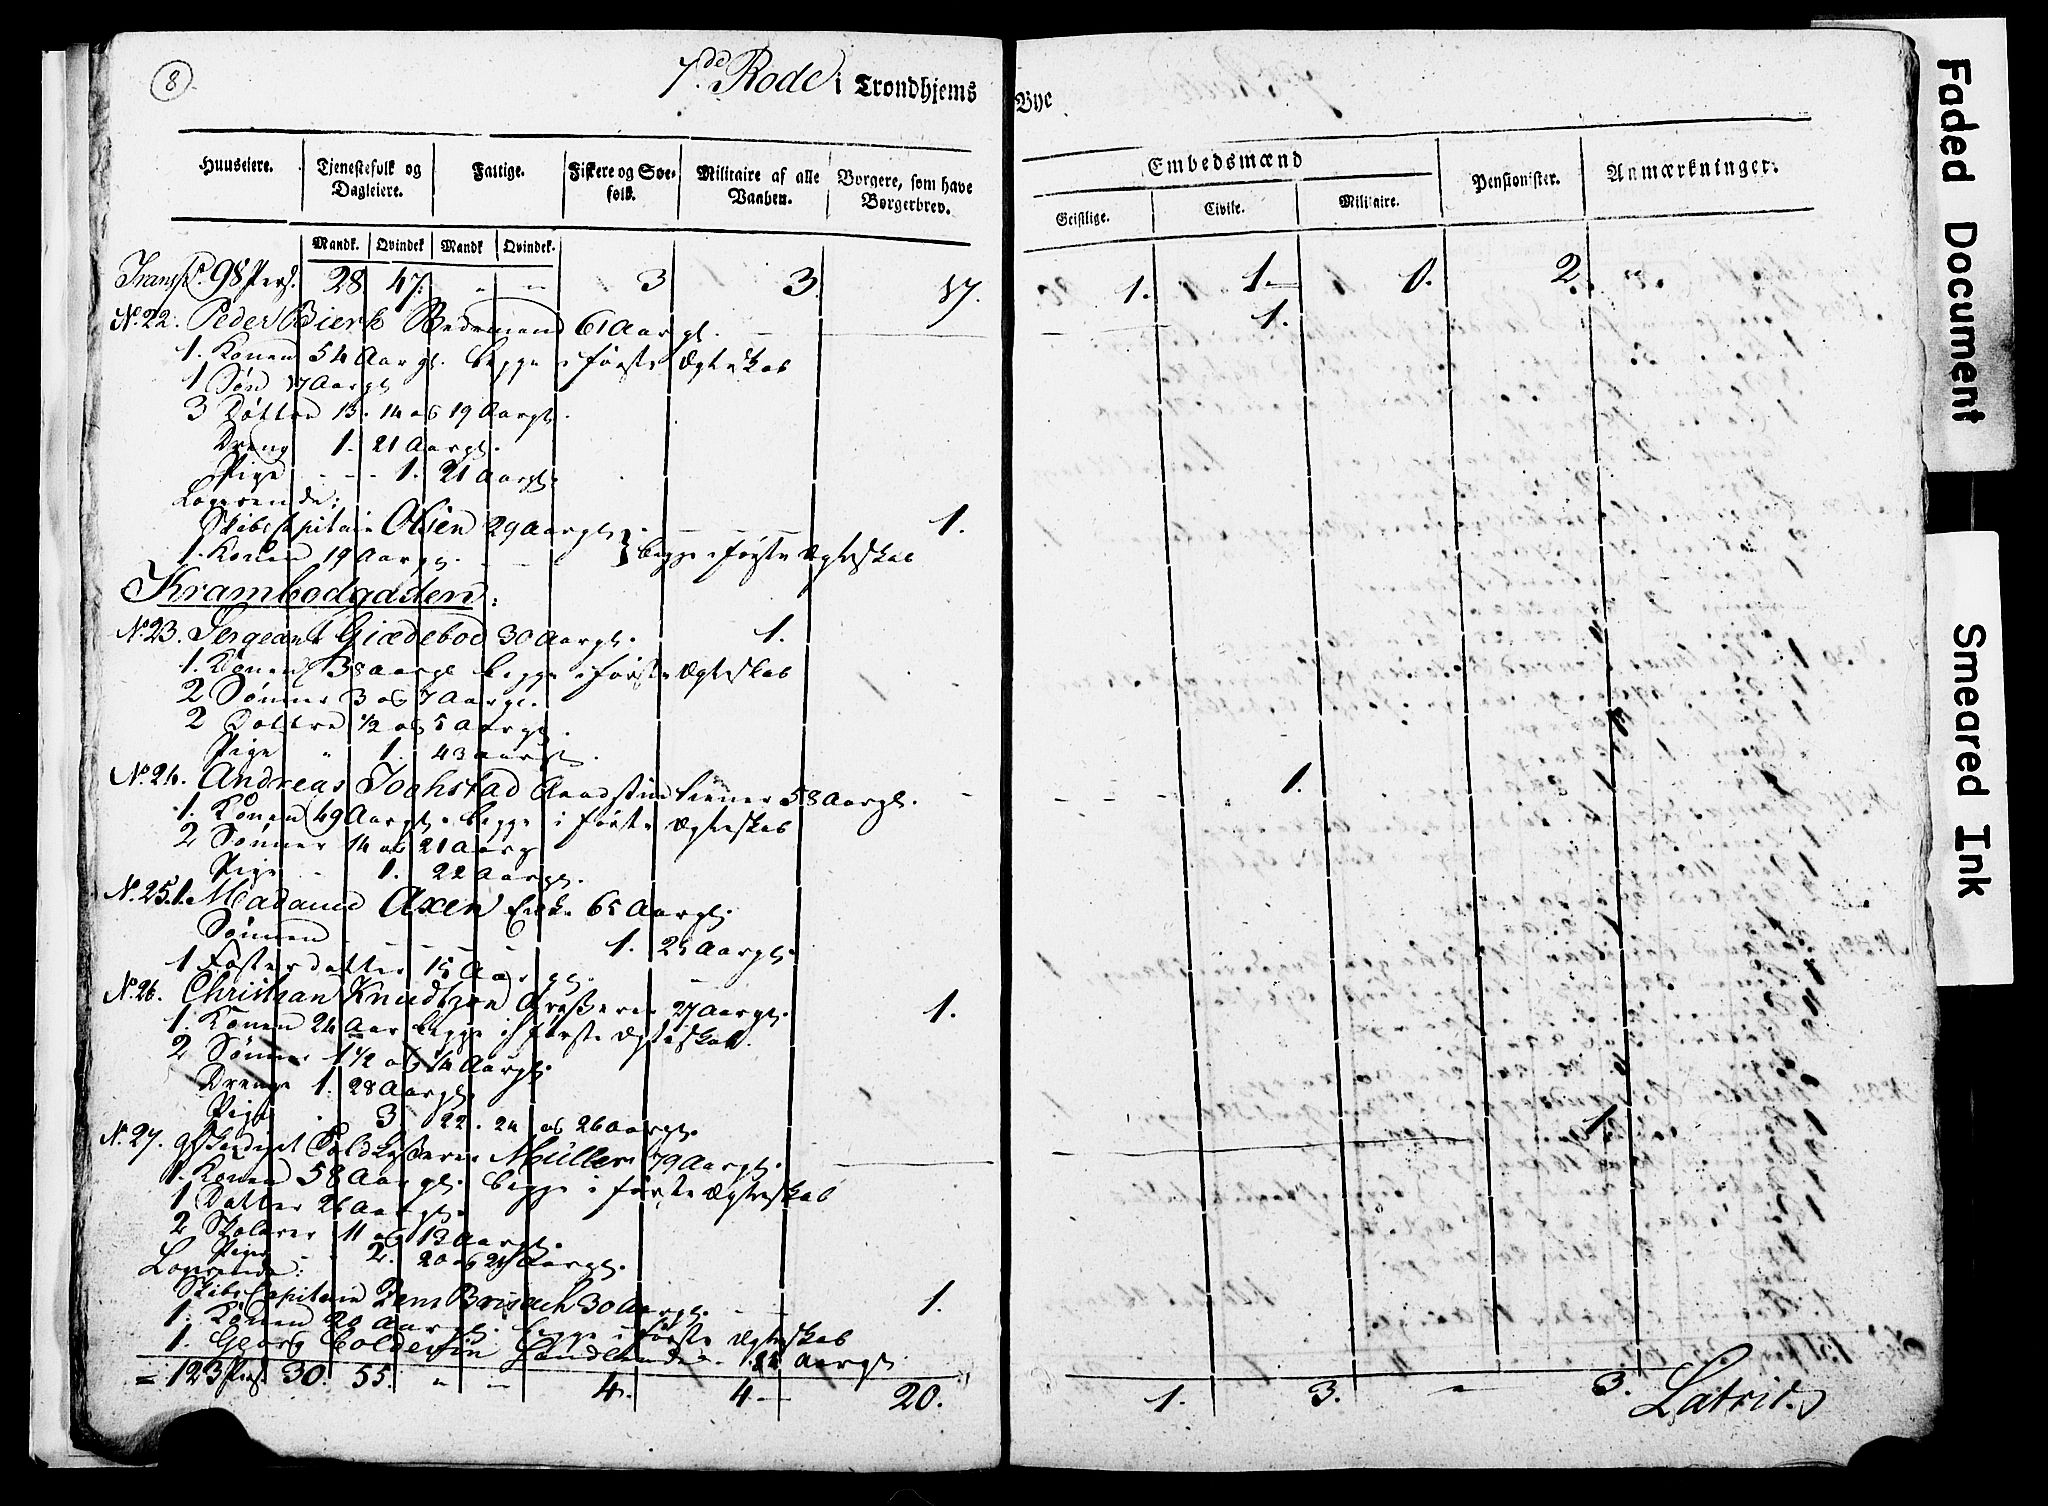 8
7de Rode i Trondhjems Bye
Huuseiere. Tjenestefolk og Dagleiere. Fattige. Fiskere og Søe-folk. Militaire af alle Vaaben. Borgere, som have Borgerbrev. Embedsmænd Pensionister. Anmærkninger.
Geistlige. Civile. Militaire.
Mandk. Qvindek Mandk Qvindek.
Transpt. 98 Pers. 28 47. - - 3 3. 17. 1. 1. 1. 2.
No. 22. Peder Bierk Bedemand 61 Aar gl. 1.
1. Konen 54 Aar gl. begge i første Ægteskab
1 Søn 17 Aar gl
3 Døttre 13. 14 og 19 Aar gl.
Dreng 1. 21 Aar gl.
Pige - - - 1. 21 Aar gl.
Logerende:
Skibs Capitain Olsen 29 Aar gl. 1.
1. Konen 19 Aar gl. } begge i første Ægteskab
Krambodgaden:
No. 23. Sergeant Giædebod 30 Aar gl. 1.
1. Konen 38 Aar gl begge i første Ægteskab
2 Sønner 3 og 7 Aar gl.
2 Døttre 1/2 og 5 Aar gl.
Pige " 1. 43 Aar gl.
No. 24. Andreas Joohstad 58 Aar gl. 1.
1. Konen 49 Aar gl. begge i første Ægteskab
2 Sønner 14 og 21 Aar g
Pige - 1. 22 Aar gl.
No. 25. 1. Madame Axen Enke 65 Aar gl.
Sønnen - - - - 1. 25 Aar gl.
1 Fosterdatter 15 Aar gl.
No. 26. Christian Knudtzon 27 Aar gl. 1.
1. Konen 24 Aar begge i første Ægteskab.
2 Sønner 1 1/2 og 1/4 Aar gl.
Drenge 1. 28 Aar gl.
Pige . 3 22. 24 og 26 Aar gl.
No. 27. Müller 79 Aar gl. 1
1. Konen 58 Aar gl. begge i første Ægteskab
1 Datter 26 Aar gl.
2 Skolarer 11 og 13 Aar gl.
Piger 2. 20 og 24 Aar gl.
Logerende:
Skibs Capitain Brisach 30 Aar gl. 1.
1. Konen 20 Aar gl. begge i første Ægteskab
1. Georg Coldevin Aar gl
= 123 Pers 30. 55. " - 4. 4 - 20. 1. 3. - 3. Latrid.
Faded Document
Smeared Ink